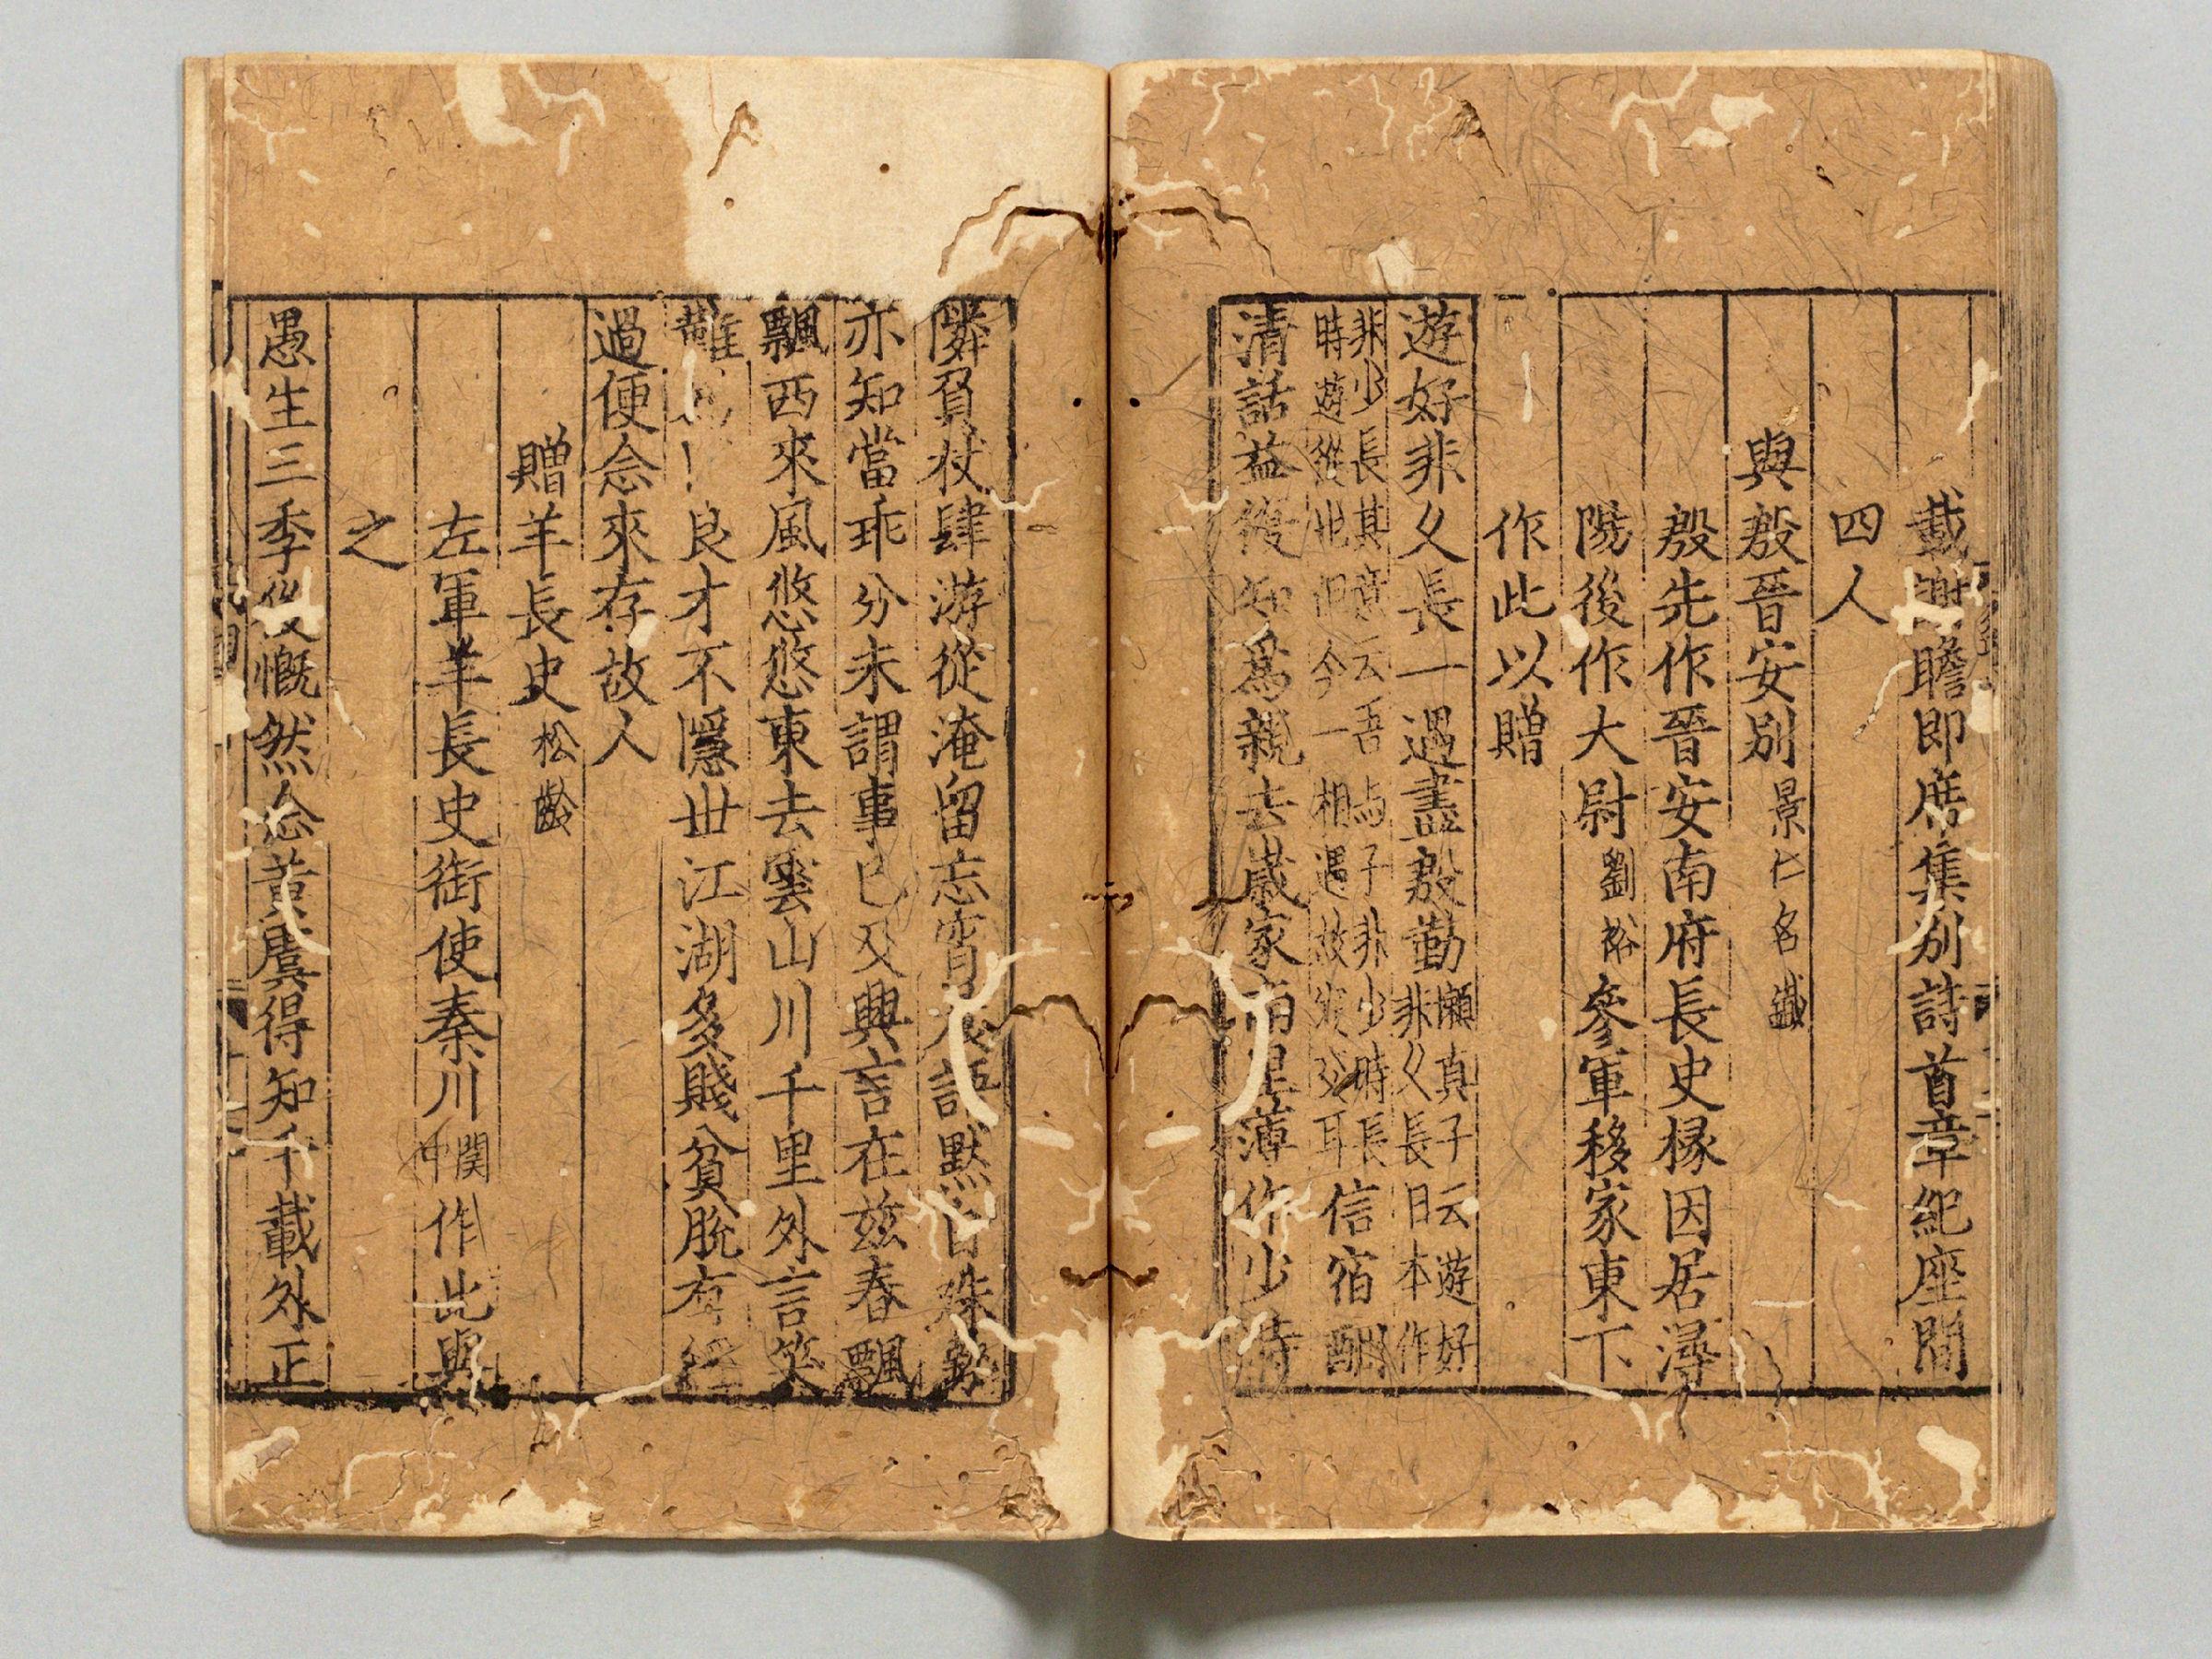 載謝瞻即席集別詩首章紀座間
四人
與殷晉安別景仁名鐵
殷先作晉安南府長史掾因居潯
陽後作大尉劉裕參軍移家東下
作此以贈
遊好非久長一遇盡殷勤懶真子云遊好非久長日本作
非少長其意云吾与子非少時長時遊從也但今一相遇故定交耳信宿酬
清話益復知爲親去歲家南里薄作少時
隣負杖肆游從淹留忘宵晨語默自殊勢
亦知當乖分未謂事已及興言在茲春飄
飄西來風悠悠東去雲山川千里外言笑
難爲良才不隱世江湖多賤貧脫有經
過便念來存故人
贈羊長史松齡
左軍羊長史銜使秦川関中作此與
之
愚生三季後慨然念黃虞得知千載外正